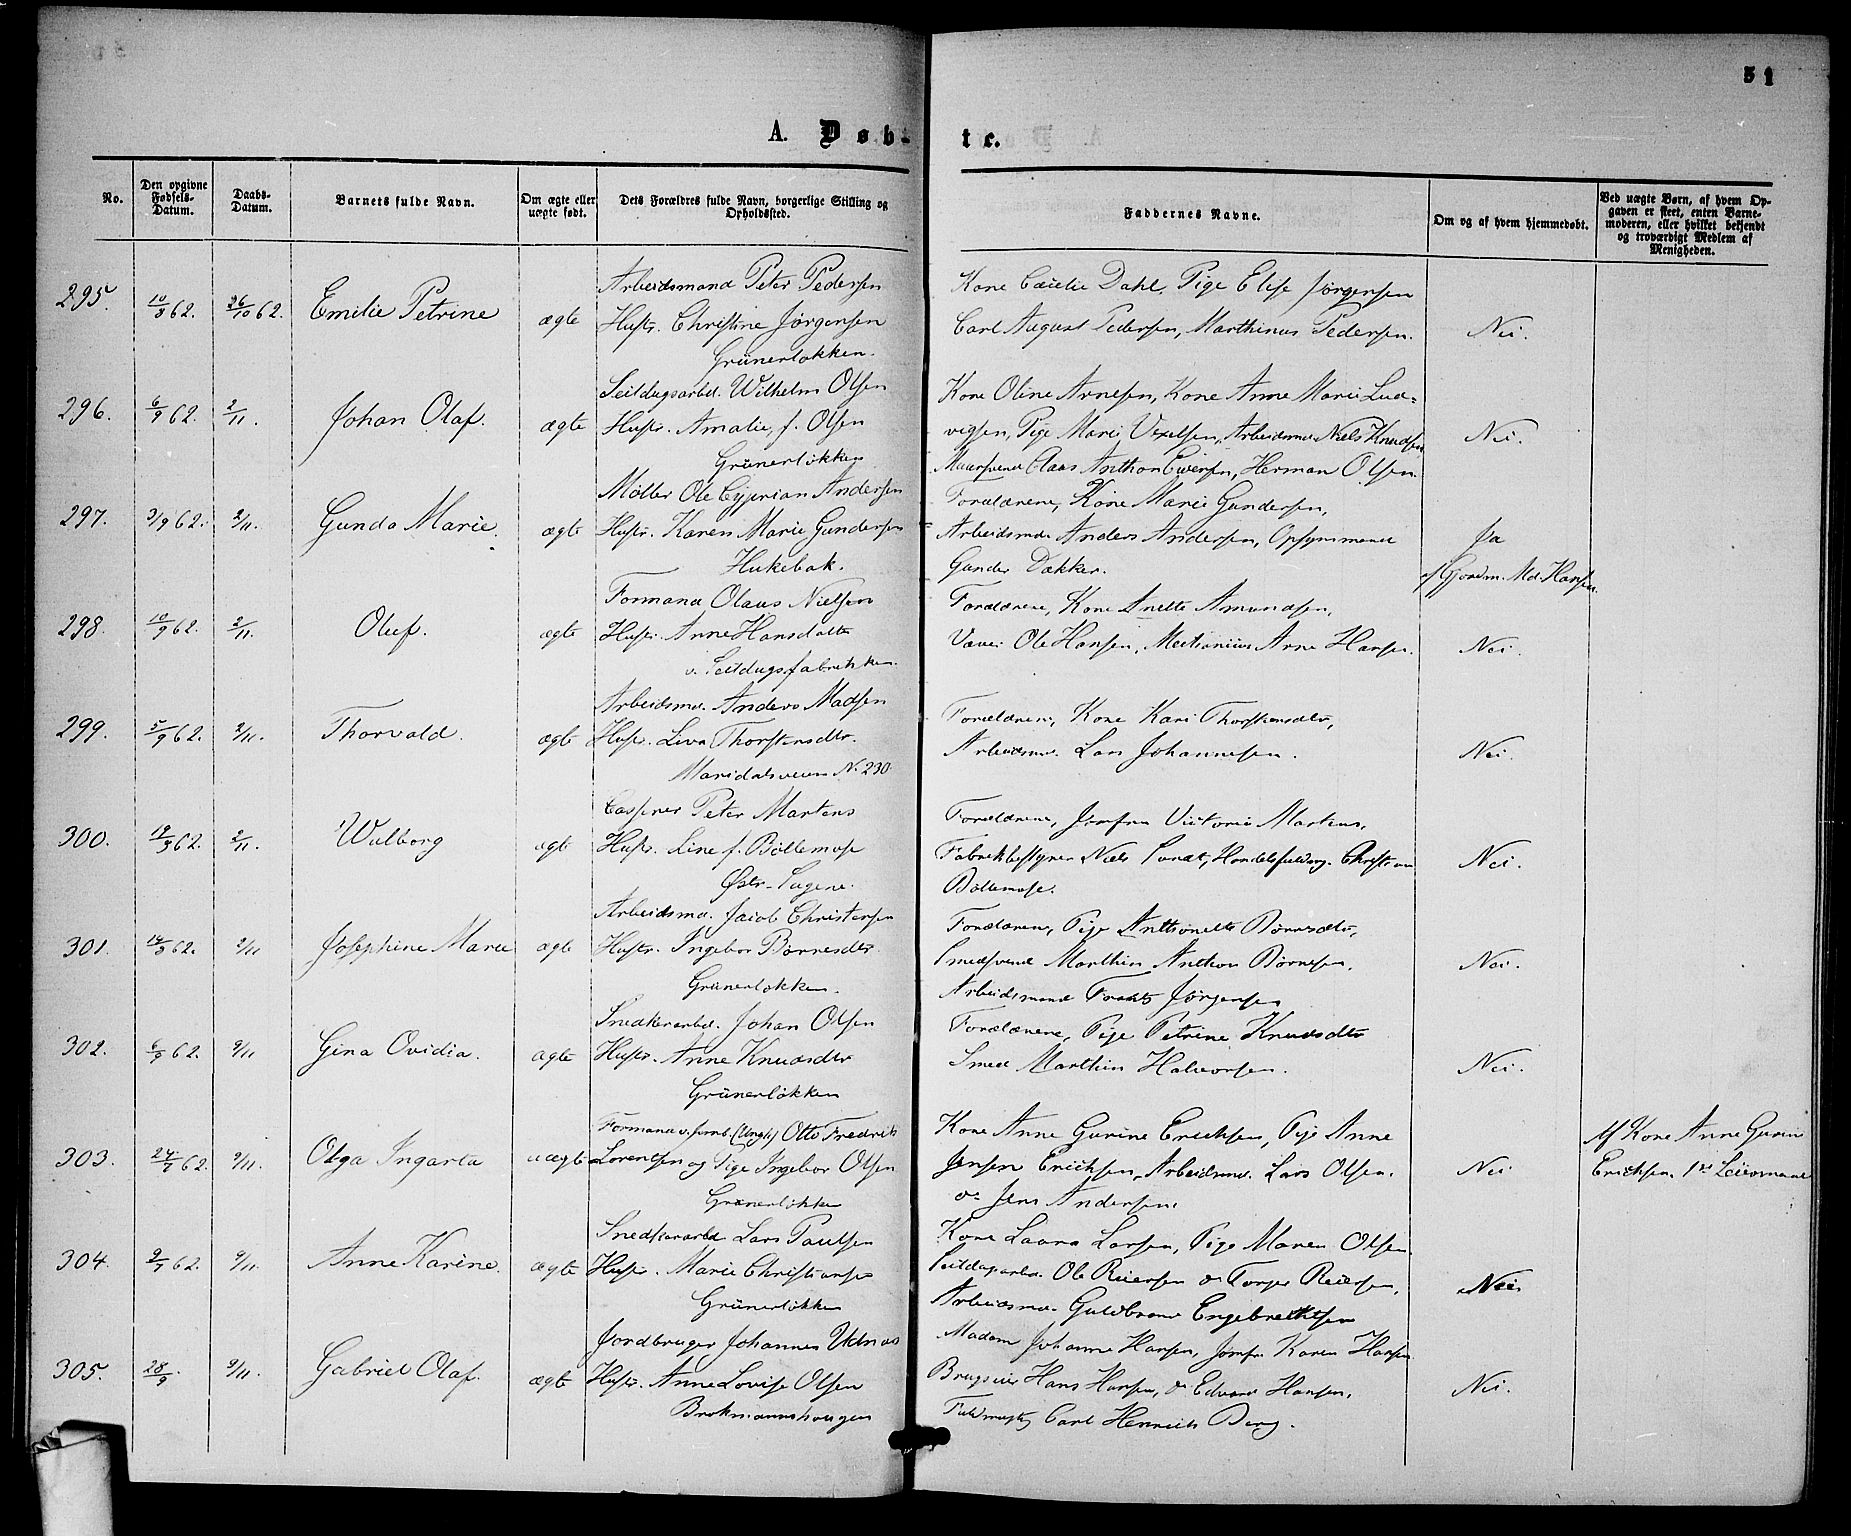 31
A. Døb-te.
No.
Den opgivne Fødsels-Datum.
Daabs-Datum.
Barnets fulde Navn.
Om ægte eller uægte født.
Dets Forældres fulde Navn, borgerlige Stilling og Opholdssted.
Faddernes Navne.
Om og af hvem hjemmedøbt.
Ved uægte Børn, af hvem Opgaven er skeet, enten Barnemoderen, eller hvilket bekjendt og troværdigt Medlem af Menigheden.
Arbeidsmand Peter Pedersen
Kone Cæcilie Dahl, Pige Elise Jørgensen
295. 10/8 62. 26/10 62. Emilie Petrine ægte Hustr. Christine Jørgensen
Carl August Pedersen, Marthinus Pedersen. Nei.
Grünerløkken.
Seildugsarbd. Wilhelm Olsen
Kone Oline Arnesen, Kone Anne Marie Lud-
296. 6/9 62. 2/11. Johan Olaf. ægte Hustr. Amalie, f. Olsen
vigsen, Pige Marie Vexelsen, Arbeidsmd. Niels Knudsen Nei.
Grünerløkken
Muursvend Claus Anthon Evensen, Herman Olsen.
Møller Ole Cyprian Andersen
Forældrene, Kone Marie Gundersen,
297. 3/9 62. 2/11. Gunda Marie. ægte Hustr. Karen Marie Gundersen
Arbeidsmd. Anders Andersen, Opsynsmand Ja
Hukebak.
Gunder Dækker. af Gjordm. Md. Hansen.
Formand Olaus Nielsen
Forældrene, Kone Anette Amundsen,
298. 10/9 62. 2/11. Oluf. ægte Hustr. Anne Hansdatter
Væver Ole Hansen, Arne Hansen. Nei.
v. Seildugsfabrikken.
Arbeidsmd. Anders Madsen
Forældrene, Kone Kari Thorstensdtr,
299. 5/9 62. 2/11. Thorvald. ægte Hustr. Liva Thorstensdtr.
Arbeidsmd. Lars Johannesen. Nei.
Maridalsveien N. 230.
Casserer Peter Martens
Forældrene, Jomfru Victoria Martens,
300. 19/9 62. 2/11. Walborg ægte Hustr. Line f. Bøllemose
Fabrikbestyrer Niels Sundt, Handelsfuldmg. Christian Nei.
Østr. Sagene.
Bøllemose.
Arbeidsmd. Jacob Christensen
Forældrene, Pige Anthonette Børresdtr,
301. 14/9 62. 2/11 Josephine Marie ægte Hustr. Ingebor Børresdtr.
Smedsvend Marthin Anthon Børresen, Nei.
Grünerløkken.
Arbeidsmand Frants Jørgensen
Snedkerarbd. Johan Olsen
Forældrene, Pige Petrine Knudsdtr
302. 6/9 62. 9/11. Gina Ovidia. ægte Hustr. Anne Knudsdtr
Smed Marthin Halvorsen. Nei.
Grünerløkken
Formand v. Jernb. (Ungk) Otto Fredrik
Kone Anne Gurine Ericksen, Pige Anne
Af Kone Anne Gurine
303. 24/7 62. 9/11. Olga Ingarta uægte Lorentsen og Pige Ingebor Olsen
Jensen Ericksen, Arbeidsmd. Lars Olsen. Nei Ericksen. 1ste Leiermaal
Grünerløkken
& Jens Andersen.
Snedkerarbd. Lars Paulsen
Kone Laura Larsen, Pige Maren Olsen
304. 9/7 62. 9/11. Anne Karine. ægte Hustr. Marie Christiansen
Seildugsarbd. Ole Reiersen & Torger Reiersen, Nei
Grünerløkken
Arbeidsmd. Guldbrand Engebrethsen
Jordbruger Johannes Udnæs
Madam Johanne Hansen, Jomfr. Karen Hansen
305. 28/9. 9/11. Gabriel Olaf. ægte Hustr. Anne Lovise Olsen
Brugseier Hans Hansen, & Edvard Hansen, Nei.
Brokmannshougen
Fuldmægtig Carl Henrich Berg.